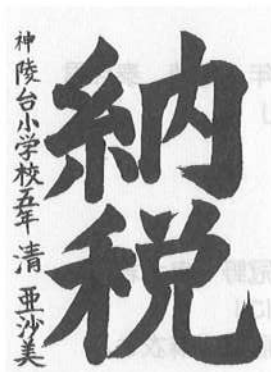 納税
神陵台小学校五年 清 亜沙美